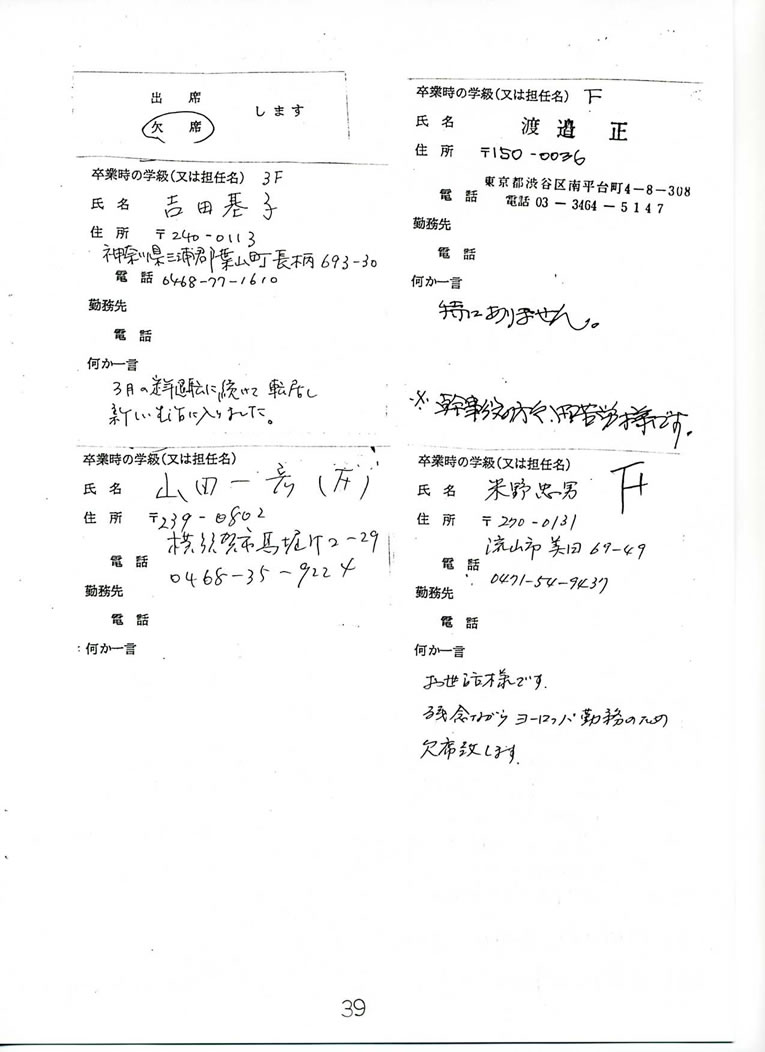 出 席
欠 席
します
卒業時の学級(又は担任名) 3F
氏 名 吉田基子
住 所 〒240-0113
神奈川県三浦郡葉山町長柄693-30
電 話 0468-77-1610
勤務先
電 話
何か一言
3月の定年退職に続いて転居し
新しい生活に入りました。
卒業時の学級(又は担任名) F
氏 名 渡邉 正
住 所 〒150-0036
東京都渋谷区南平台町4-8-308
電 話 電話 03-3464-5147
勤務先
電 話
何か一言
特にありません。
※ 幹事役の方々、御苦労様です。
卒業時の学級(又は担任名)
氏 名 山田一彦
住 所 〒239-0802
横須賀市馬堀町2-29
電 話 0468-35-9224
勤務先
電 話
何か一言
卒業時の学級(又は担任名)
氏 名 米野忠男
住 所 〒270-0131
流山市美田69-49
電 話 0471-54-9437
勤務先
電 話
何か一言
お世話様です.
残念ながらヨーロッパ勤務のため
欠席致します.
39